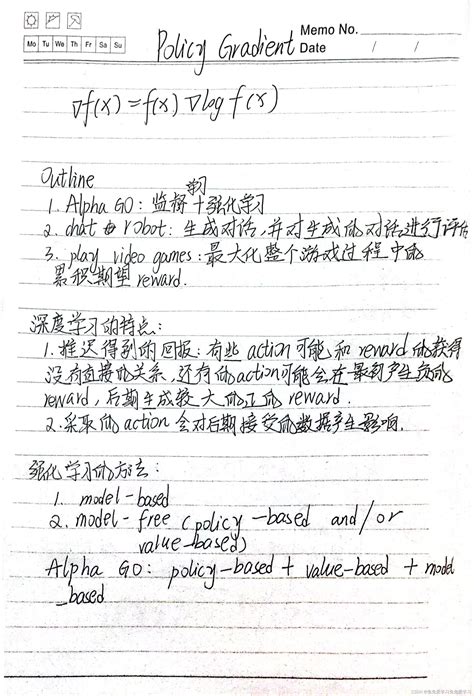 Mo Tu We Th Fr Sa Su
Policy Gradient
Memo No.
Date / /
∇f(x) = f(x) ∇log f(x)
Outline
1. Alpha GO: 监督学习+强化学习
2. chat robot: 生成对话,并对生成的对话进行评估
3. play video games: 最大化整个游戏过程中的
累积期望reward.
深度学习的特点:
1. 推迟得到的回报: 有些action可能和reward的获得
没有直接的关系,还有的action可能会在最初产生较的
reward,后期生成较大的正的reward.
2. 采取的action会对后期接受的数据产生影响.
强化学习的方法:
1. model-based
2. model-free (policy-based and/or
value-based)
Alpha GO: policy-based + value-based + model
_based